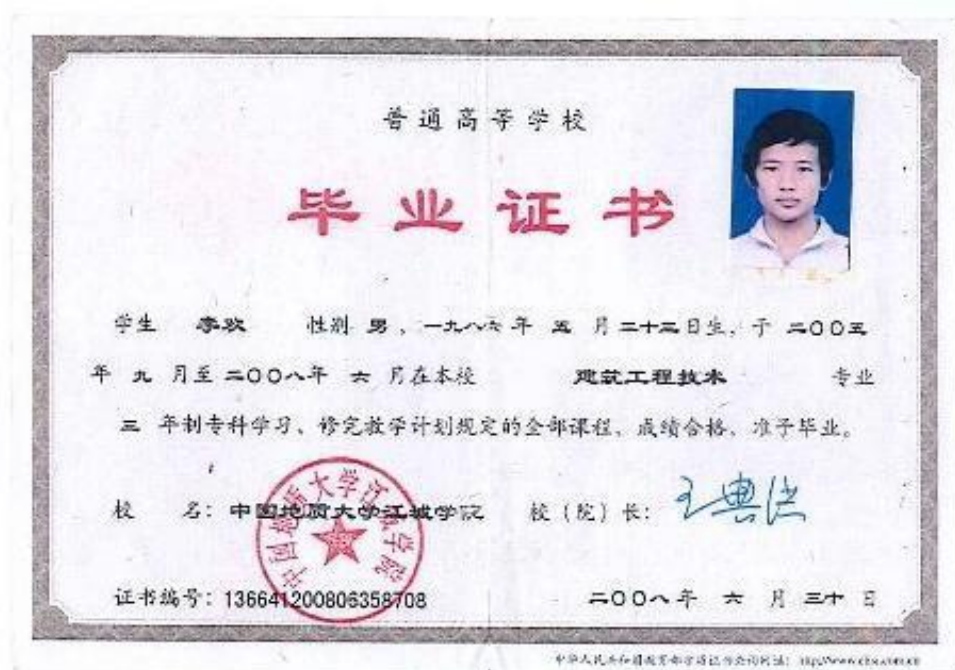 普通高等学校
毕业证书
学生 李欢 性别 男，一九八六年 五 月二十二日生，于 二〇〇五
年 九 月至二〇〇八年 六 月在本校 建筑工程技术 专业
三 年制专科学习、修完教学计划规定的全部课程、成绩合格、准予毕业。
校 名：中国地质大学江城学院 校（院）长：王典洪
中国地质大学江城学院
证书编号：136641200806358708 二〇〇八年 六 月 三十 日
中华人民共和国教育部学历证书查询网址：http://www.chsi.com.cn